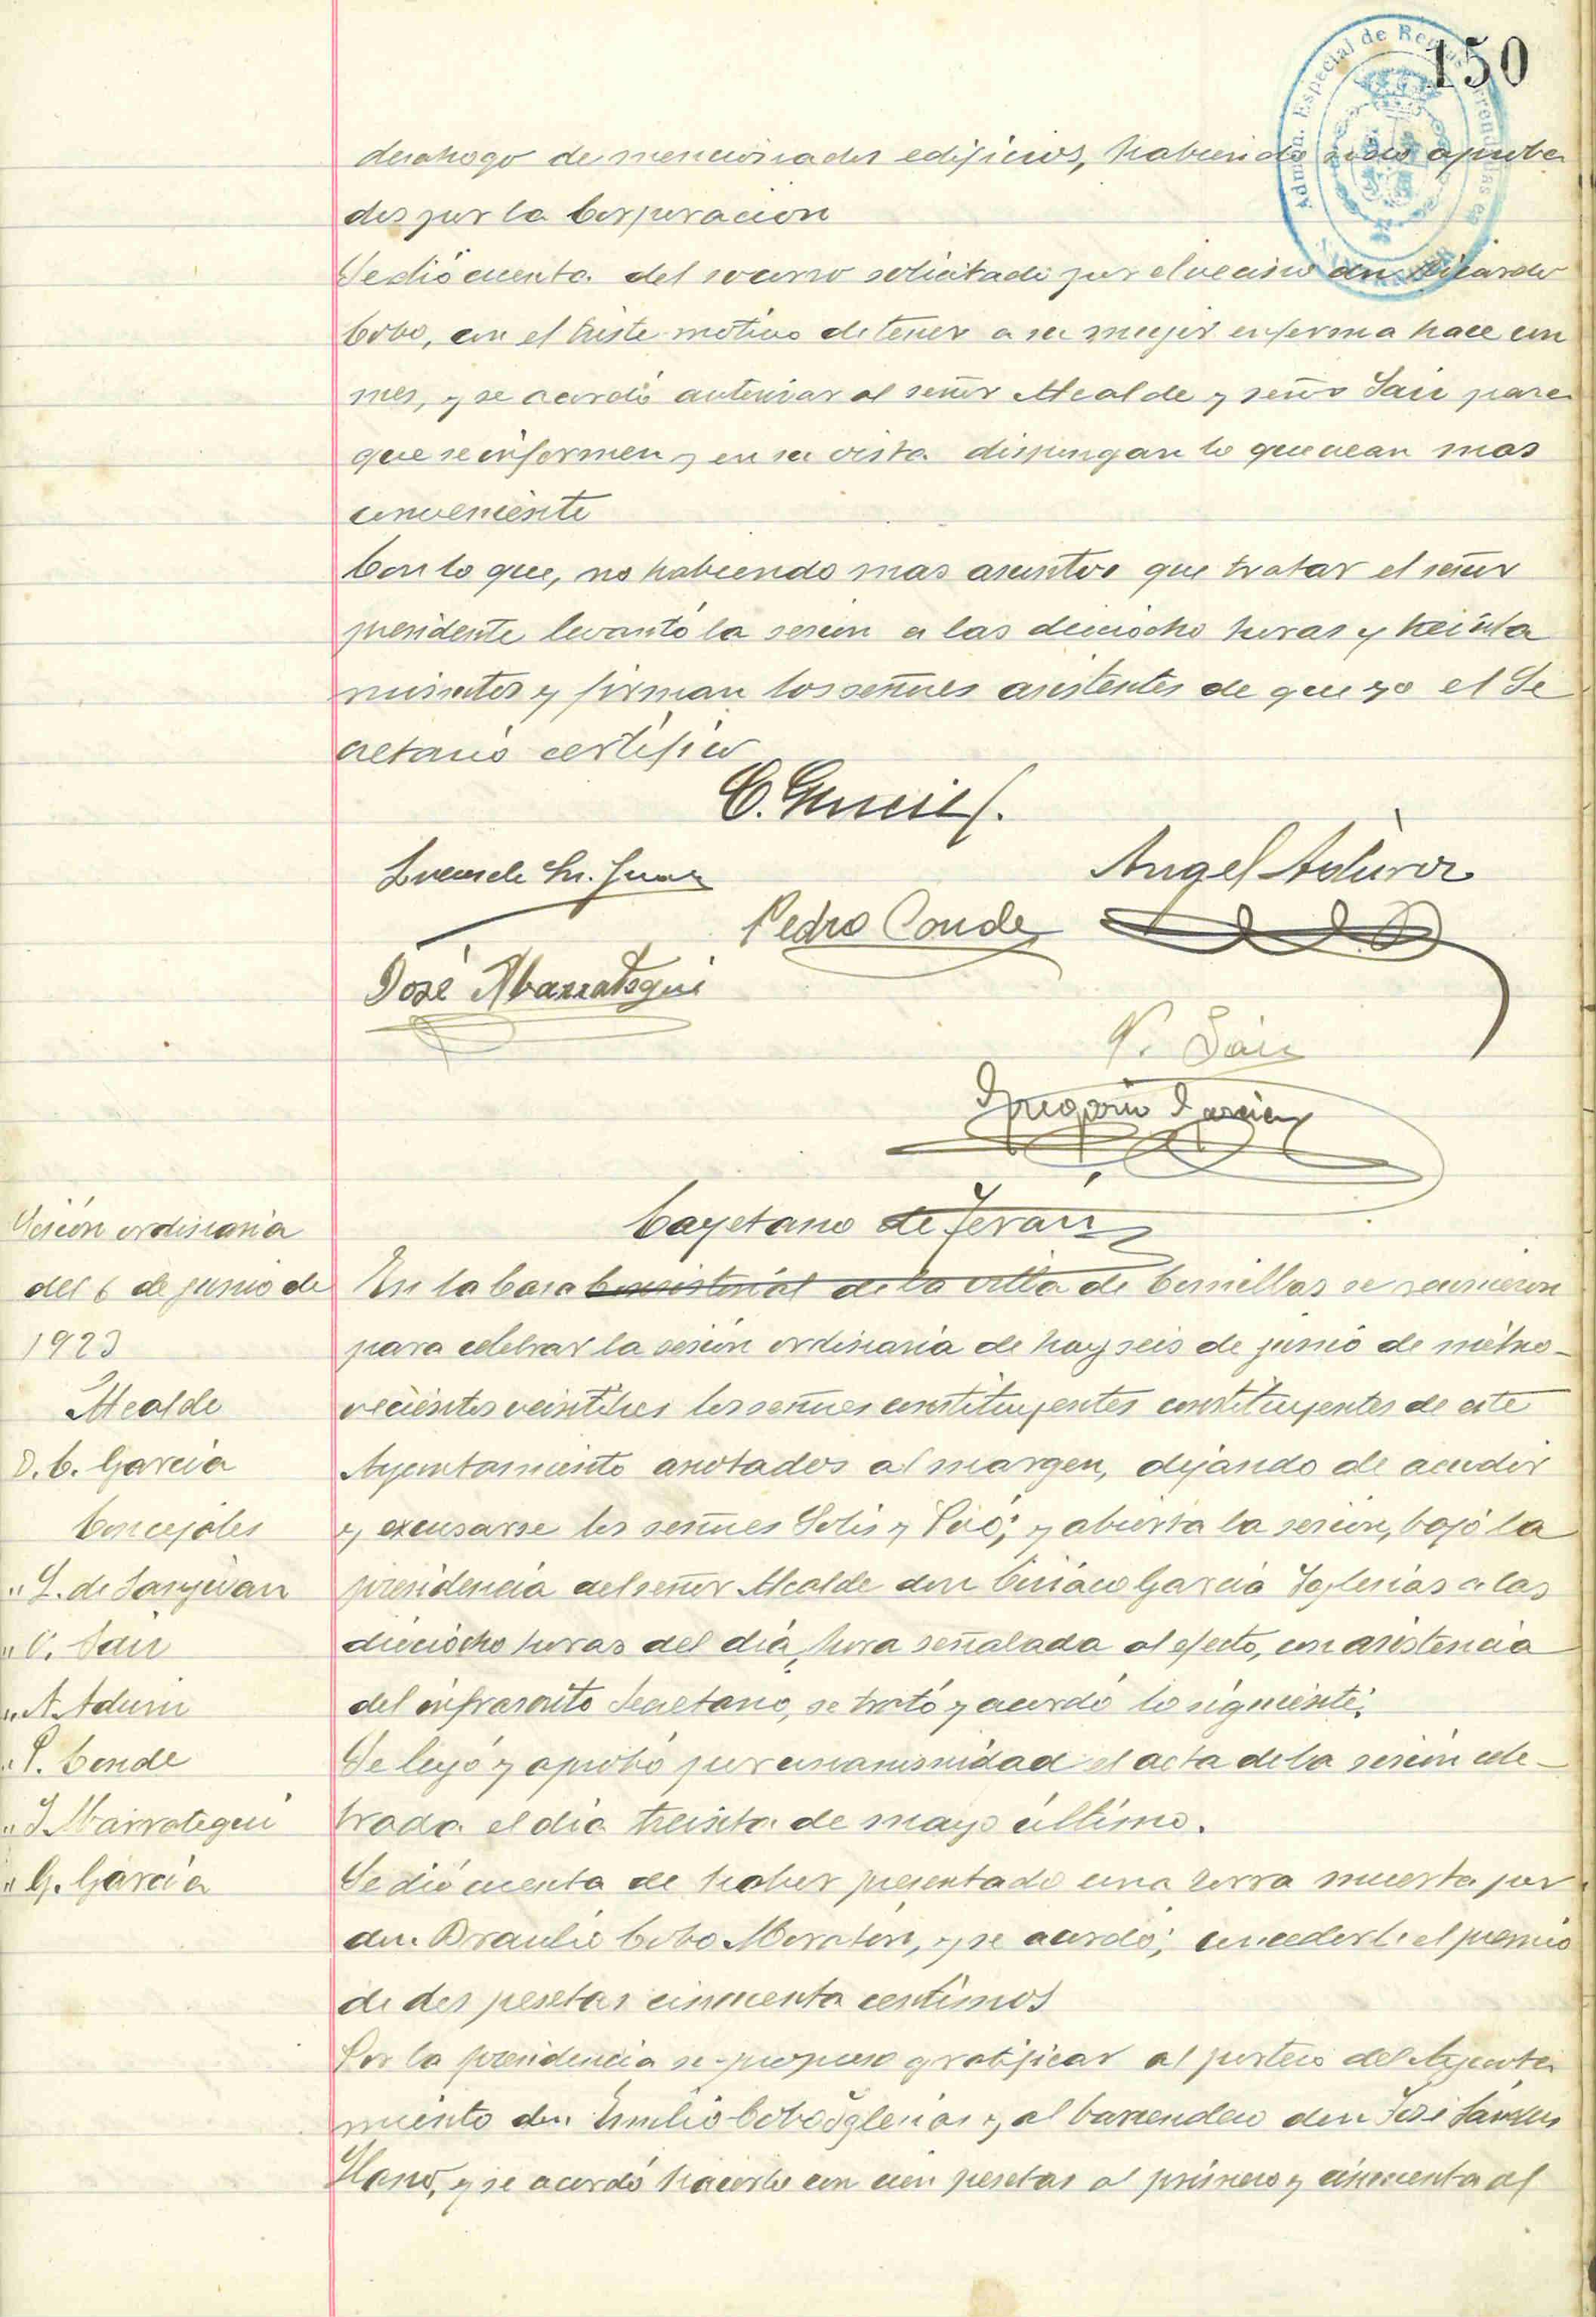 150
Admón. Especial de Rentas Arrendadas
desahogo de mencionados edificios, habiendo sido aproba
dos por la Corporacion
Se dió cuenta del socorro solicitado por el vecino don Ricardo
Cobo, con el triste motivo de tener a su mujer enferma hace un
mes, y se acordó autorizar al señor Alcalde y señor Saiz para
que se informen y en su vista dispongan lo que vean mas
conveniente
Con lo que, no habiendo mas asuntos que tratar el señor
presidente levantó la sesion a las dieciocho horas y treinta
minutos y firman los señores asistentes de que yo el Se
cretario certifico
C. Garcia
Angel Aduriz
Pedro Conde
José Abarrategui
V. Sáiz
Gregorio Garcia
Cayetano de Terán
Sesión ordinaria
del 6 de junio de
1923
Alcalde
D. C. Garcia
Concejales
" L. de Sanjuan
" V. Saiz
" A. Aduriz
" P. Conde
" J. Abarrategui
" G. Garcia
En la Casa Consistorial de la villa de Comillas se reunieron
para celebrar la sesión ordinaria de hoy seis de junio de mil no-
vecientos veintitres los señores constituyentes constituyentes de este
Ayuntamiento anotados al margen, dejando de acudir
y excusarse los señores Solis y Pió; y abierta la sesion, bajo la
presidencia del señor Alcalde don Ciriaco Garcia Iglesias a las
dieciocho horas del dia, hora señalada al efecto, con asistencia
del infrascrito Secretario, se trató y acordó lo siguiente:
Se leyó y aprobó por unanimidad el acta de la sesión cele-
brada el dia treinta de mayo último.
Se dió cuenta de haber presentado una zorra muerta por
don Braulio Cobo Moraton, y se acordó; concederle el premio
de dos pesetas cincuenta centimos
Por la presidencia se propuso gratificar al portero del Ayunta
miento don Emilio Cobo Iglesias y al barrendero don José Sanchez
Llano, y se acordó hacerlo con cien pesetas al primero y cincuenta al